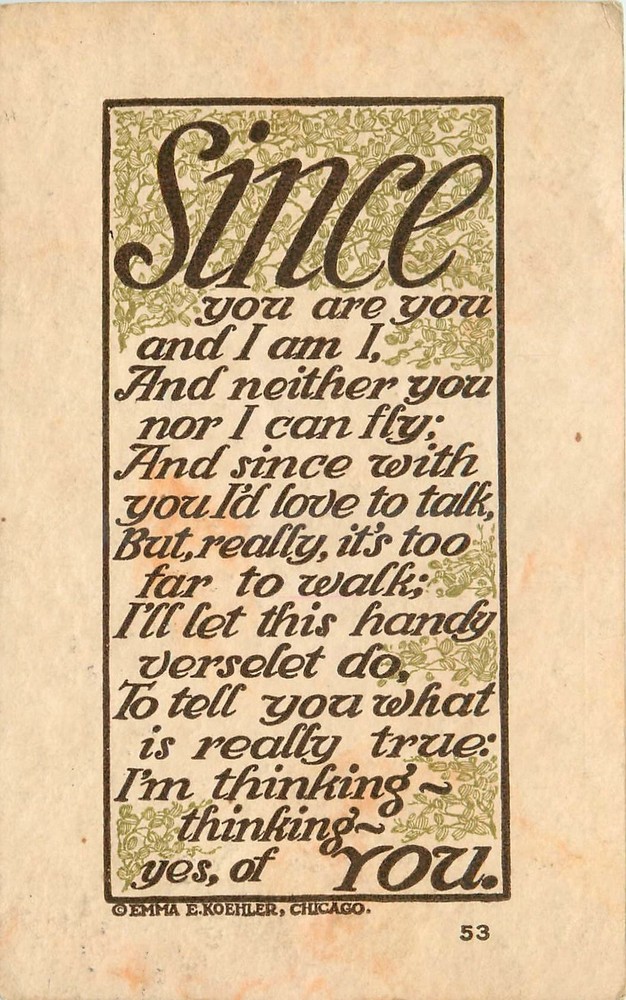 Since
you are you
and I am I,
And neither you
nor I can fly;
And since with
you I'd love to talk,
But, really, it's too
far to walk;
I'll let this handy
verselet do,
To tell you what
is really true:
I'm thinking~
thinking~
yes, of YOU.
©EMMA E. KOEHLER, CHICAGO.
53